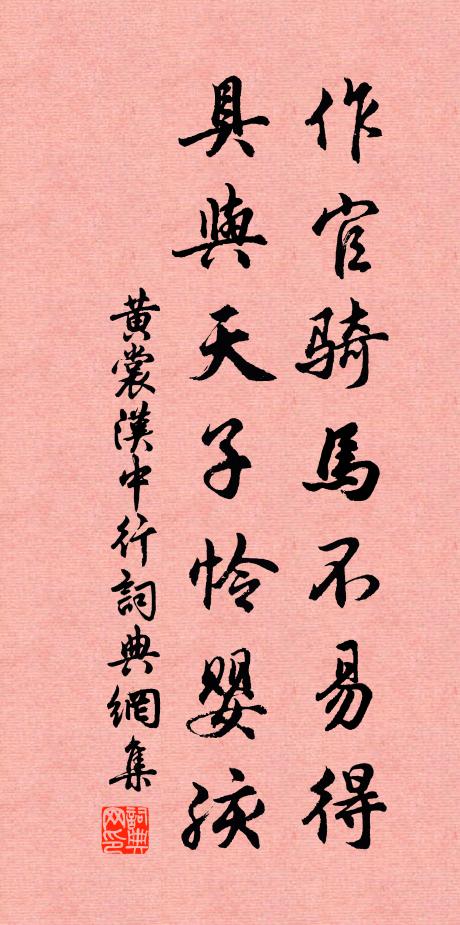 作官騎馬不易得
具與天子怜嬰孩
黄裳漢中行詞典網集
詞典网印